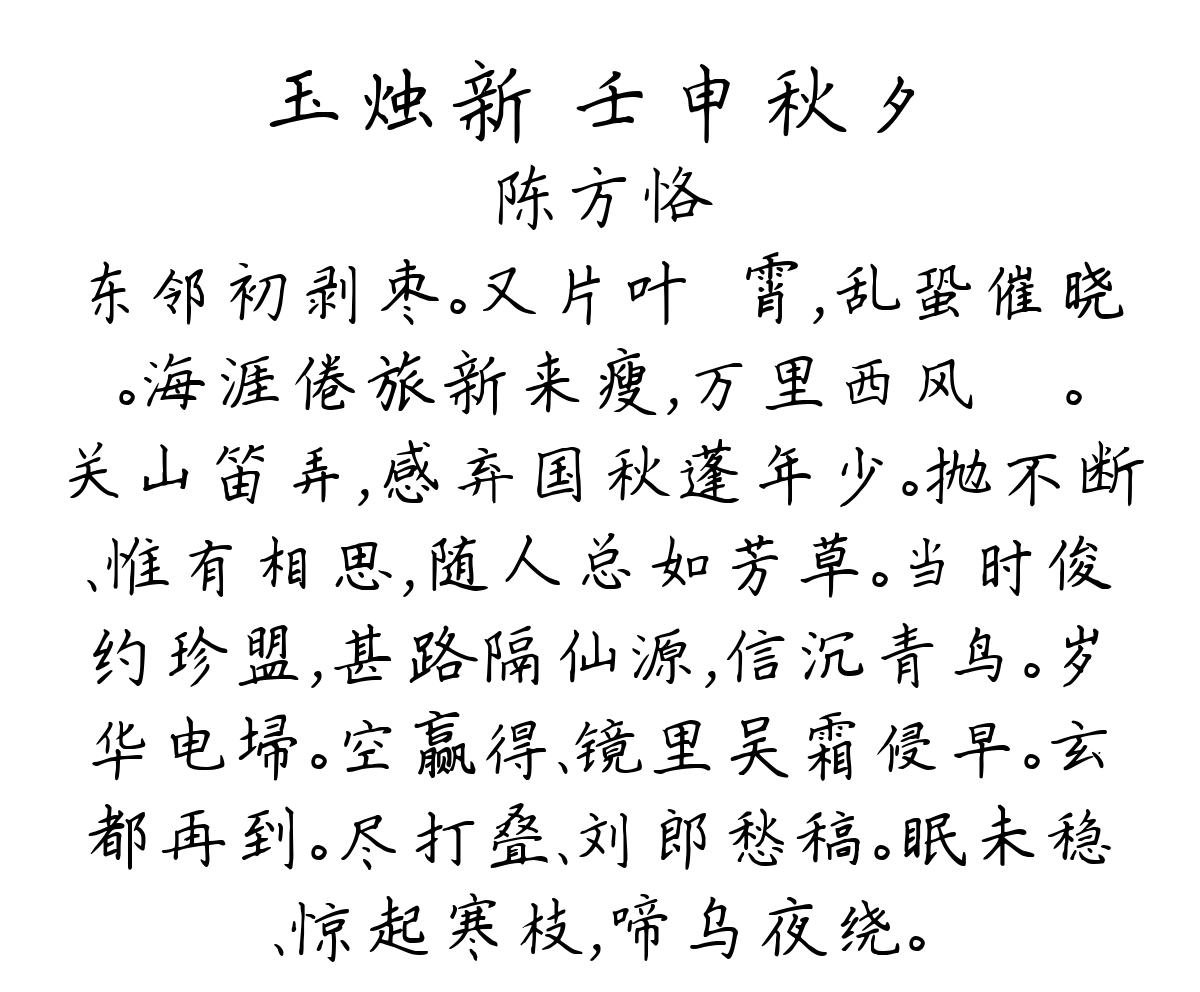 玉烛新 壬申秋夕
陈方恪
东邻初剥枣。又片叶 霄,乱蛩催晓
。海涯倦旅新来瘦,万里西风 。
关山笛弄,感弃国秋蓬年少。抛不断
、惟有相思,随人总如芳草。当时俊
约珍盟,甚路隔仙源,信沉青鸟。岁
华电埽。空赢得、镜里吴霜侵早。玄
都再到。尽打叠、刘郎愁稿。眠未稳
、惊起寒枝,啼乌夜绕。